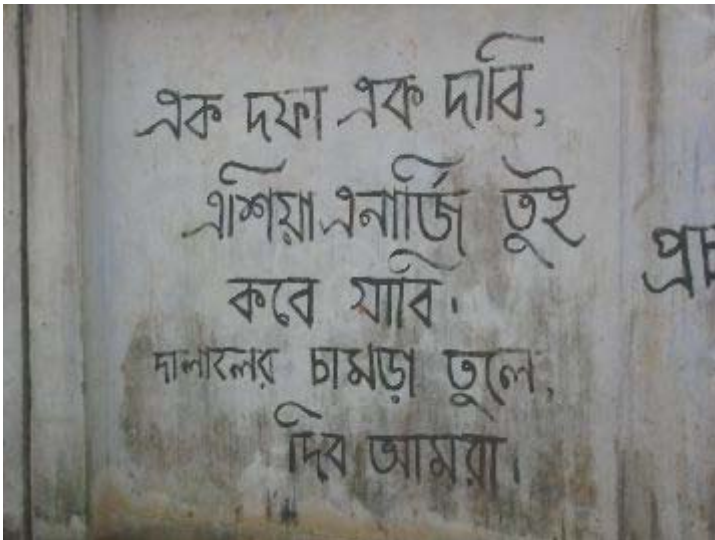 এক দফা এক দাবি,
এশিয়া এনার্জি তুই
কবে যাবি।
দালালের চামড়া তুলে,
দিব আমরা।